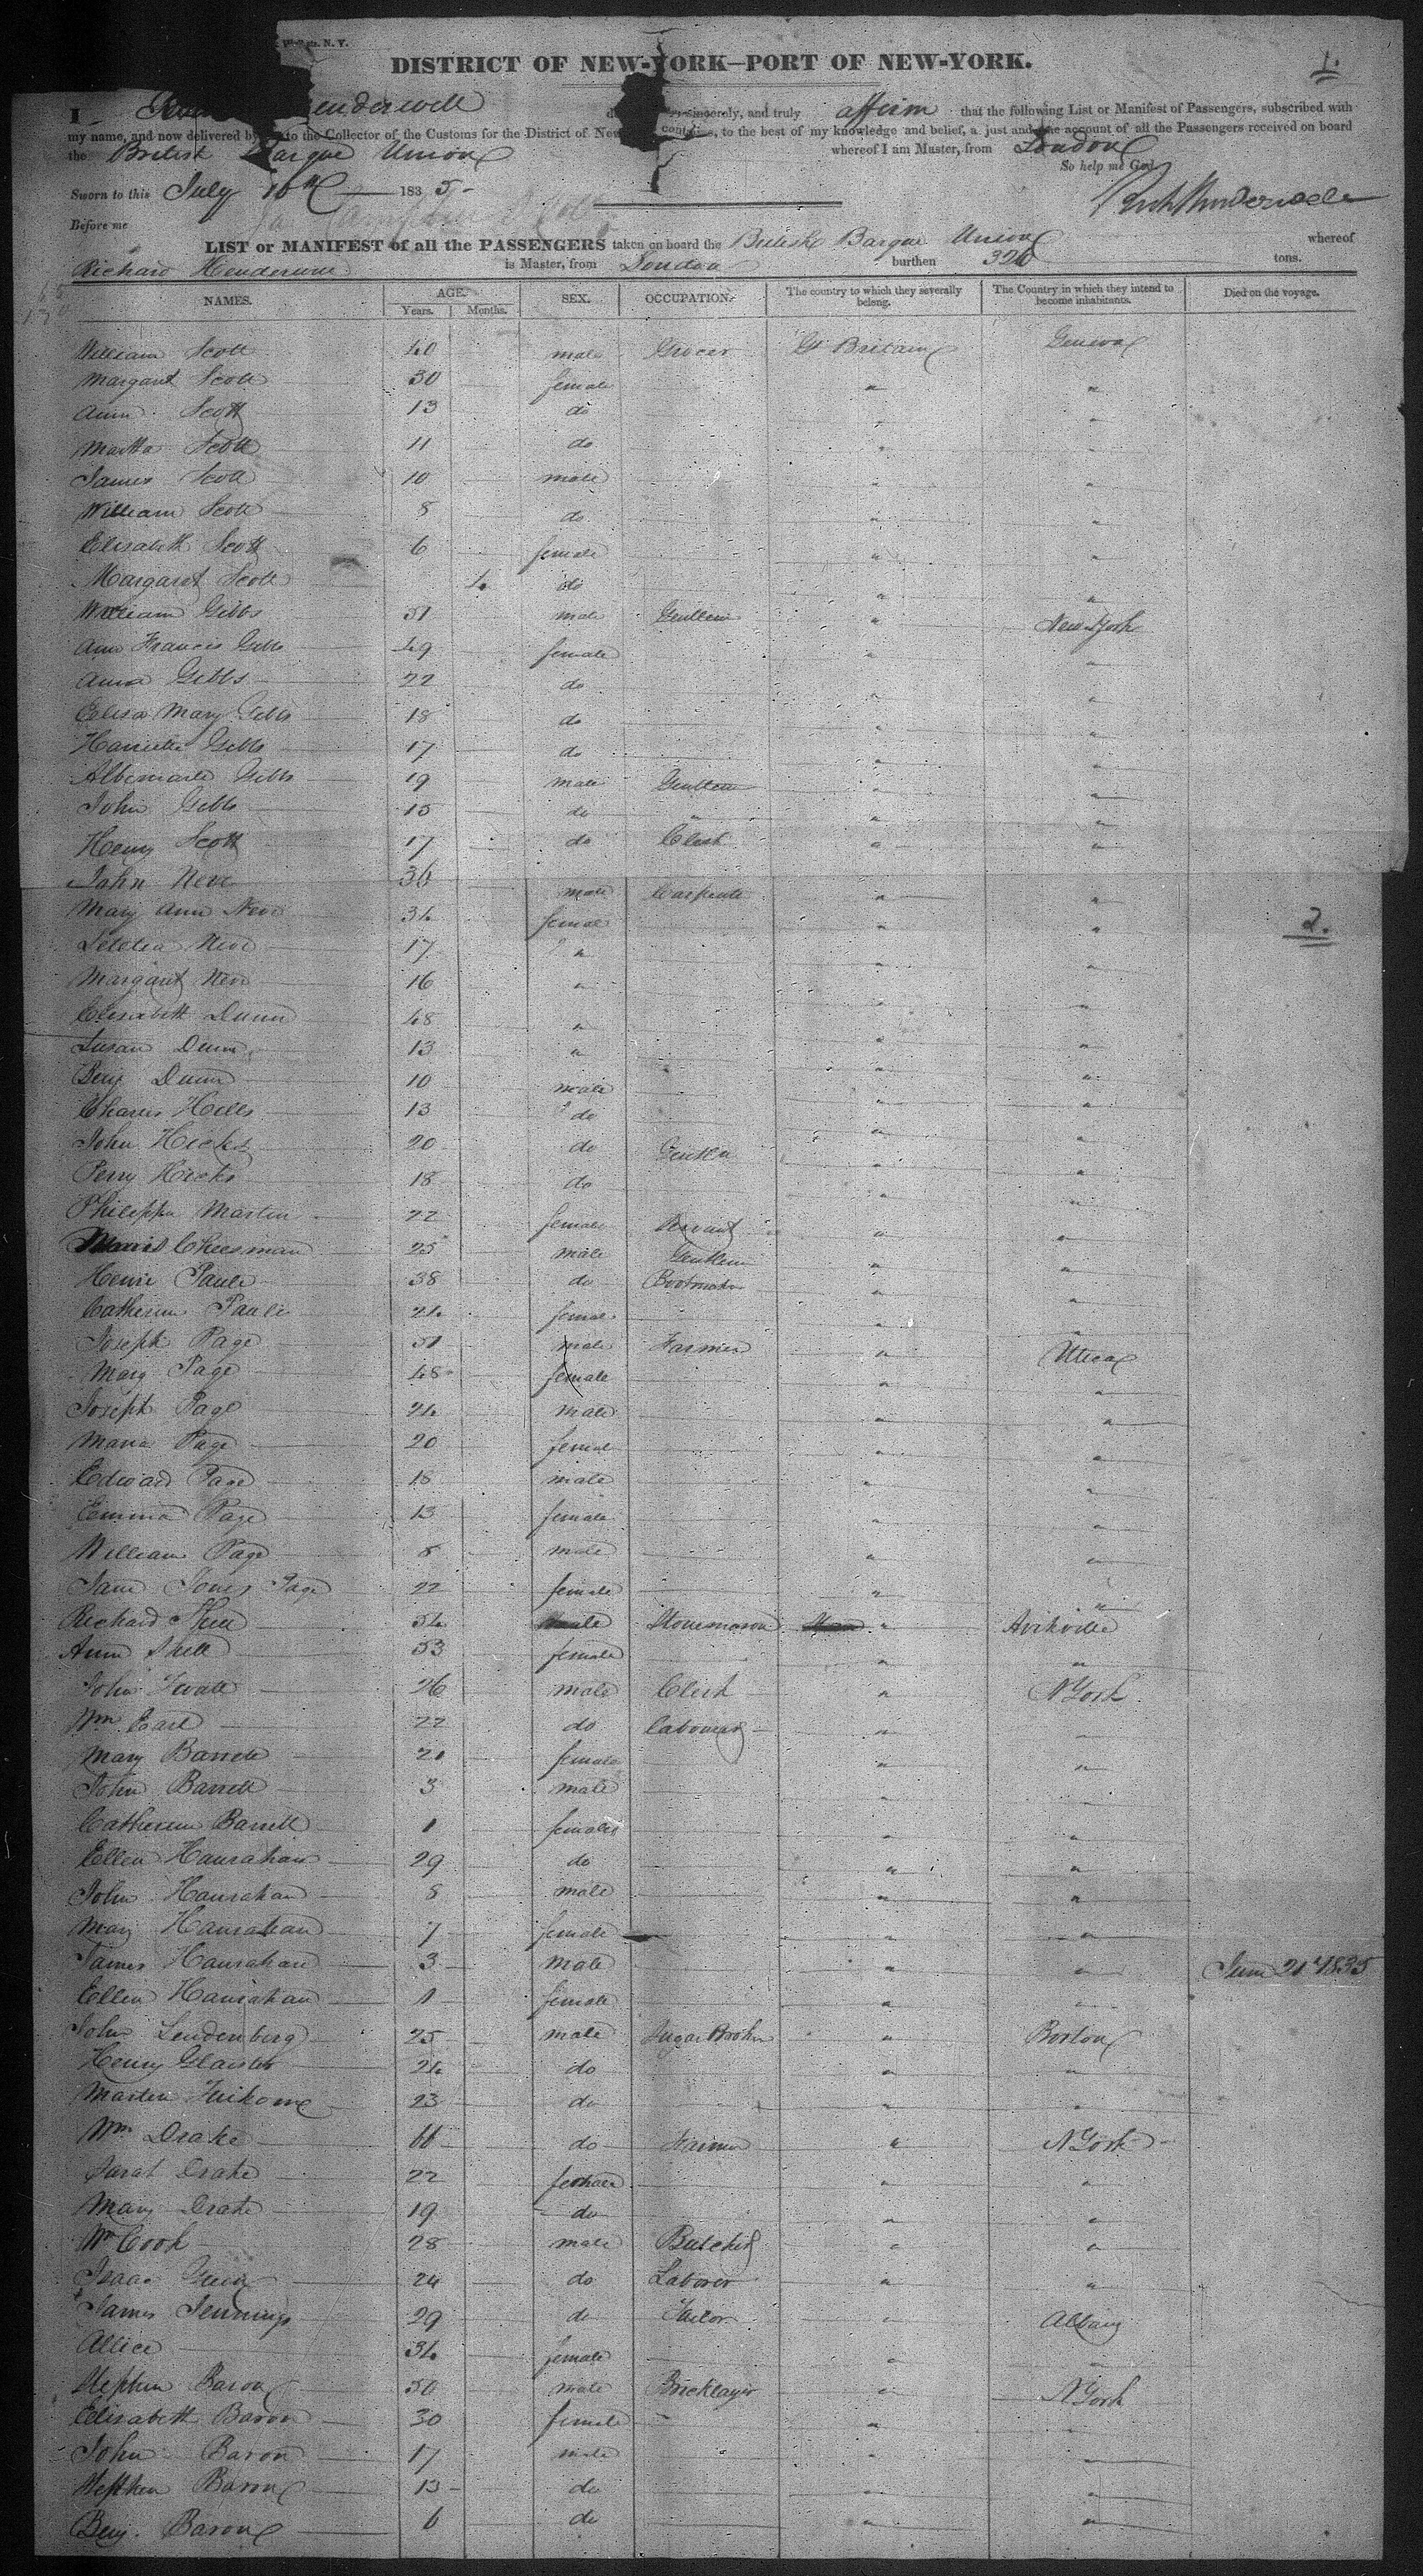 N. Y.
DISTRICT OF NEW-YORK—PORT OF NEW-YORK.
1.
I enderwell sincerely, and truly affirm that the following List or Manifest of Passengers, subscribed with
my name, and now delivered by to the Collector of the Customs for the District of New contains, to the best of my knowledge and belief, a just and account of all the Passengers received on board
the British Barque Union whereof I am Master, from London
So help me God.
Sworn to this July 10th 1835
Before me
LIST or MANIFEST of all the PASSENGERS taken on board the British Barque Union whereof
Richard is Master, from London burthen tons.
NAMES. AGE. SEX. OCCUPATION. The country to which they severally belong. The Country in which they intend to become inhabitants. Died on the voyage.
Years. Months.
William Scott 40 male Grocer Gt Britain Geneva
Margaret Scott 30 female " "
Ann Scott 13 do " "
Martha Scott 11 do " "
James Scott 10 male " "
William Scott 8 do " "
Elisabeth Scott 6 female " "
Margaret Scott 4 do " "
William Gibbs 51 male Gentlem " New York
Ann Francis Gibbs 49 female " "
Anna Gibbs 22 do " "
Eliza Mary Gibbs 18 do " "
Harriette Gibbs 17 do " "
Albemarle Gibbs 19 male Gentlem " "
John Gibbs 15 do " " "
Henry Scott 17 do Clerk " "
John Neve 36 male Carpente " "
Mary Ann Neve 34 female " "
2.
Letetia Neve 17 " " "
Margaret Neve 16 " " "
Elisabeth Dunn 48 " " "
Susan Dunn 13 " " "
Benj Dunn 10 male " "
Charles Hills 13 do " "
John Hicks 20 do " "
Perry Hicks 18 do " "
Philippa Martin 22 female Servant " "
Cheesman 25 male Gentlem " "
Henri Paule 38 do Bootmaker " "
Catherine Paule 24 female " "
Joseph Page 51 male Farmer " Utica
Mary Page 48 female " "
Joseph Page 24 male " "
Maria Page 20 female " "
Edward Page 18 male " "
Emma Page 13 female " "
William Page 8 male " "
Jane Jones Page 22 female " "
Richard 54 male Stonemason "
Ann Shell 53 female " "
John 26 male Clerk " N York
Wm Earl 22 do Labourer " "
Mary Barrett 21 female " "
John Barrett 3 male " "
Catherine Barrett 1 female " "
Ellen Hanrahan 29 do " "
John Hanrahan 8 male " "
Mary Hanrahan 7 female " "
James Hanrahan 3 male " " June 21st 1835
Ellen Hanrahan 1 female " "
John Lendenberg 25 male Sugar Broker " Boston
Henry 24 do " "
Martin 23 do " "
Wm Drake do Farmer " N York
Sarah Drake 22 female " "
Mary Drake 19 do " "
Wm Cook 28 male Butcher " "
Isaac 24 do Laborer " "
James Jennings 29 do Tailor " Albany
Allice 34 female " "
Stephen Baron 50 male Bricklayer " N York
Elisabeth Baron 30 female " "
John Baron 17 male " "
Stephen Baron 13 do " "
Benj. Baron 6 do " "